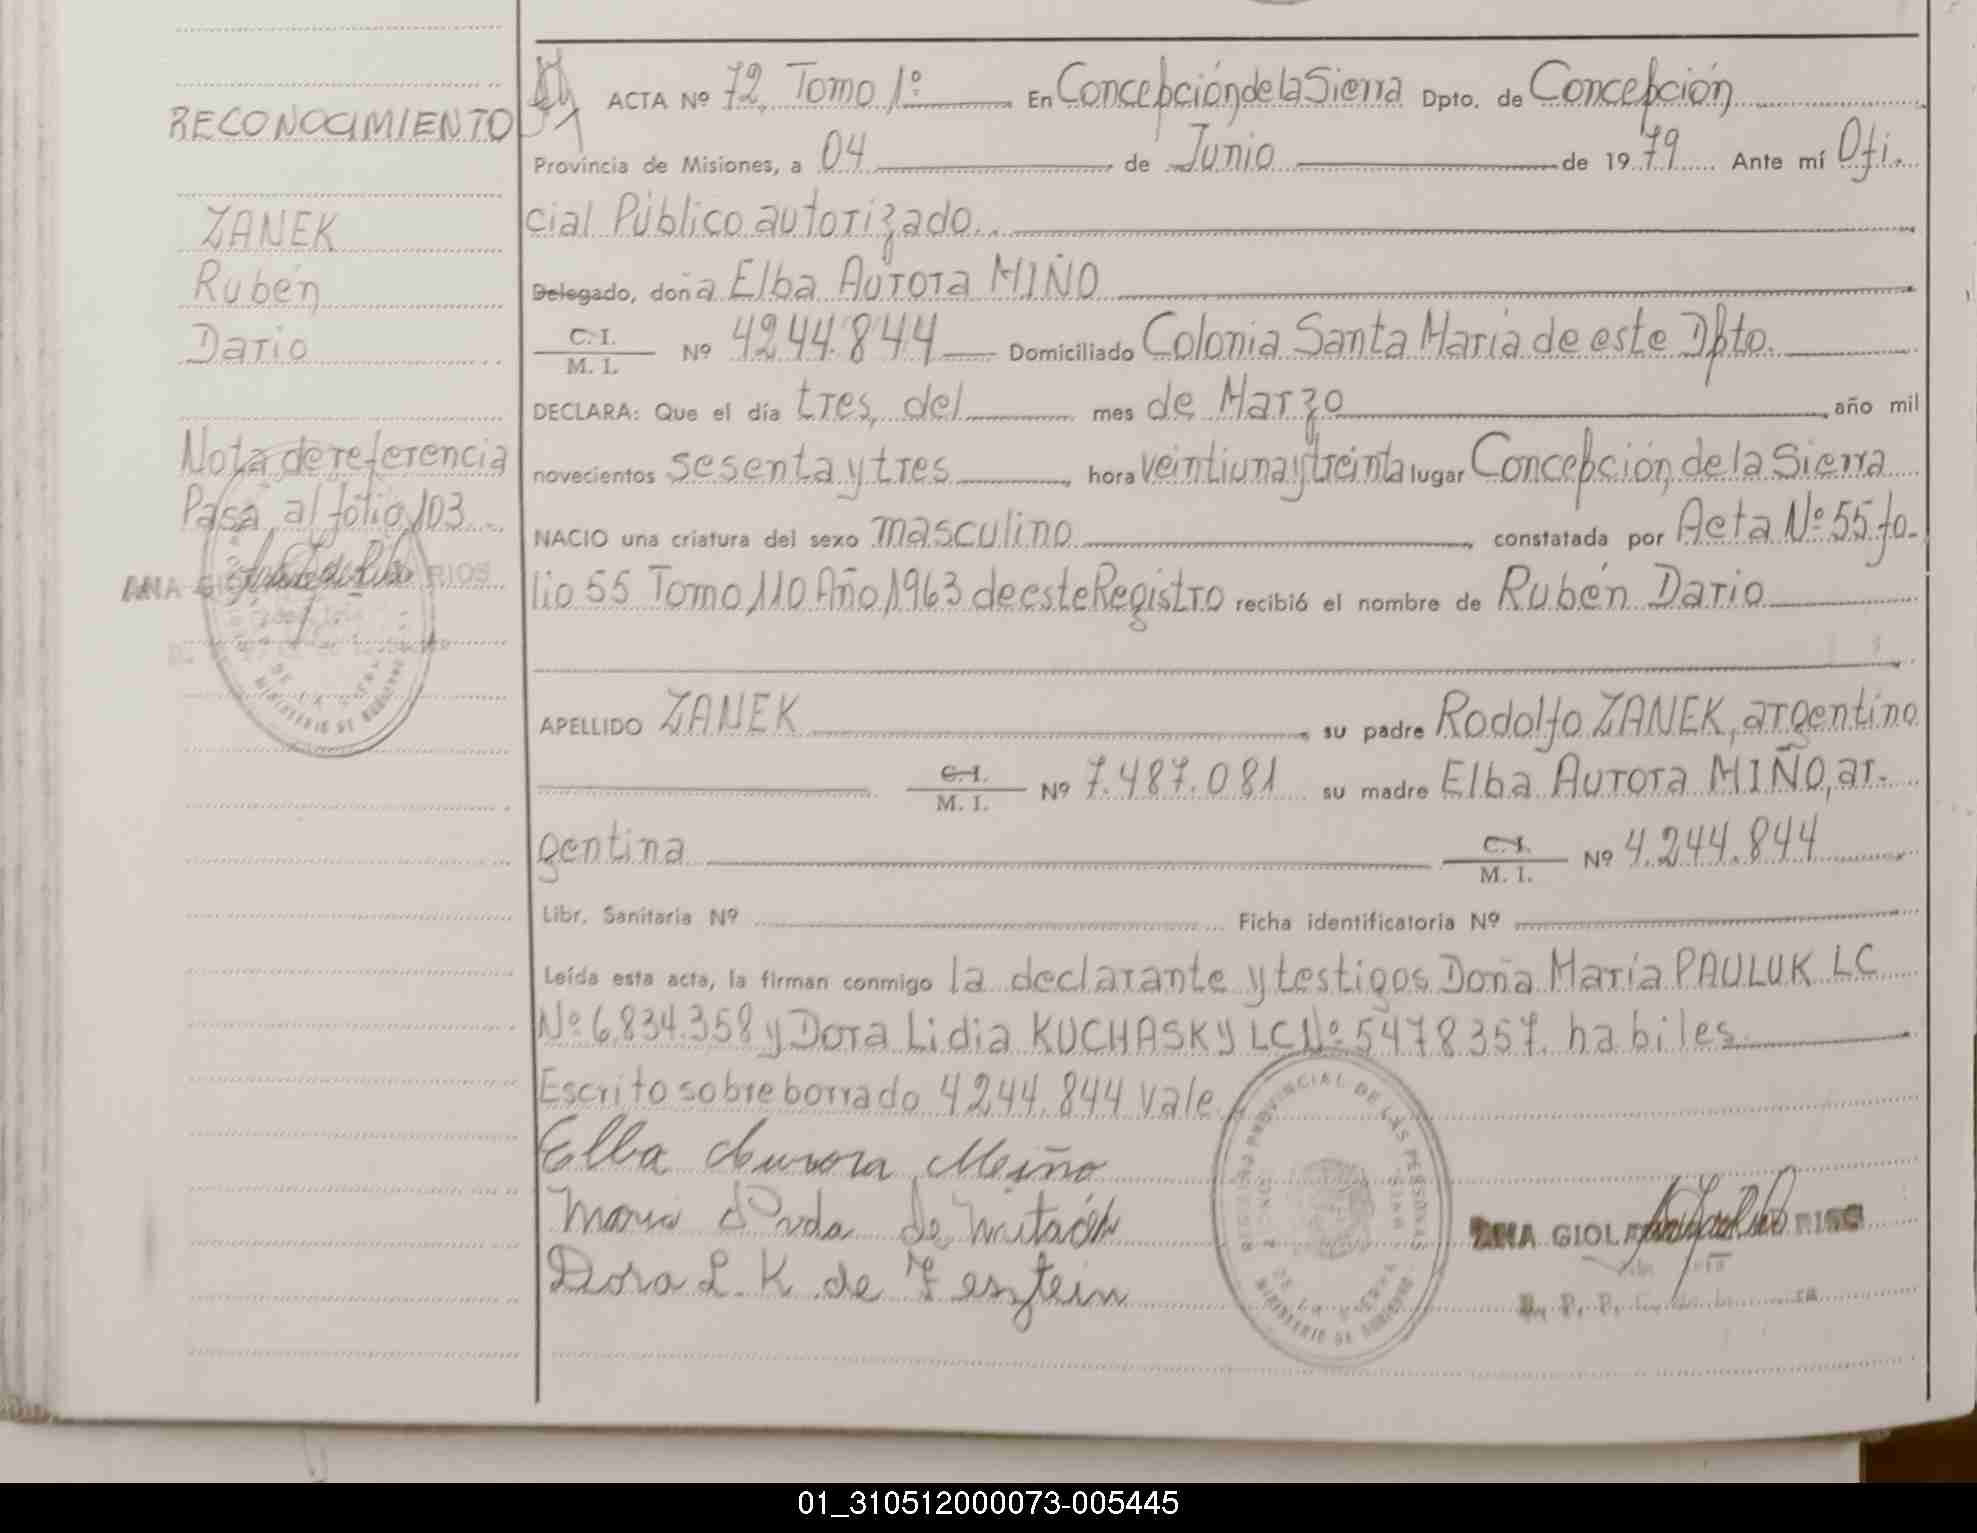 RECONOCIMIENTO
ZANEK
Rubén
Dario
Nota de referencia
Pasa al folio 103
ANA RIOS
ACTA Nº 72 Tomo 1º En Concepción de la Sierra Dpto. de Concepción
Provincia de Misiones, a 04 de Junio de 1979 Ante mí Ofi.
cial Público autorizado.
Delegado, doña Elba Aurora MIÑO
C. I. / M. I. Nº 4244.844 Domiciliado Colonia Santa María de este Dpto.
DECLARA: Que el día tres, del mes de Marzo año mil
novecientos sesenta y tres hora veintiuna y treinta lugar Concepción de la Sierra
NACIO una criatura del sexo masculino constatada por Acta Nº 55 fo-
lio 55 Tomo 110 Año 1963 de este Registro recibió el nombre de Rubén Dario
APELLIDO ZANEK su padre Rodolfo ZANEK, argentino
C. I. / M. I. Nº 7.487.081 su madre Elba Aurora MIÑO, ar-
gentina C. I. / M. I. Nº 4.244.844
Libr. Sanitaria Nº Ficha identificatoria Nº
Leída esta acta, la firman conmigo la declarante y testigos Doña María PAULUK LC
Nº 6.834.358 y Dora Lidia KUCHASKY LC Nº 5478357. habiles
Escrito sobre borrado 4244.844 vale.
Elba Aurora Miño
Maria de
Dora L. K. de
REGISTRO PROVINCIAL DE LAS PERSONAS
DE LA SIERRA
MINISTERIO DE GOBIERNO
ANA
01_310512000073-005445